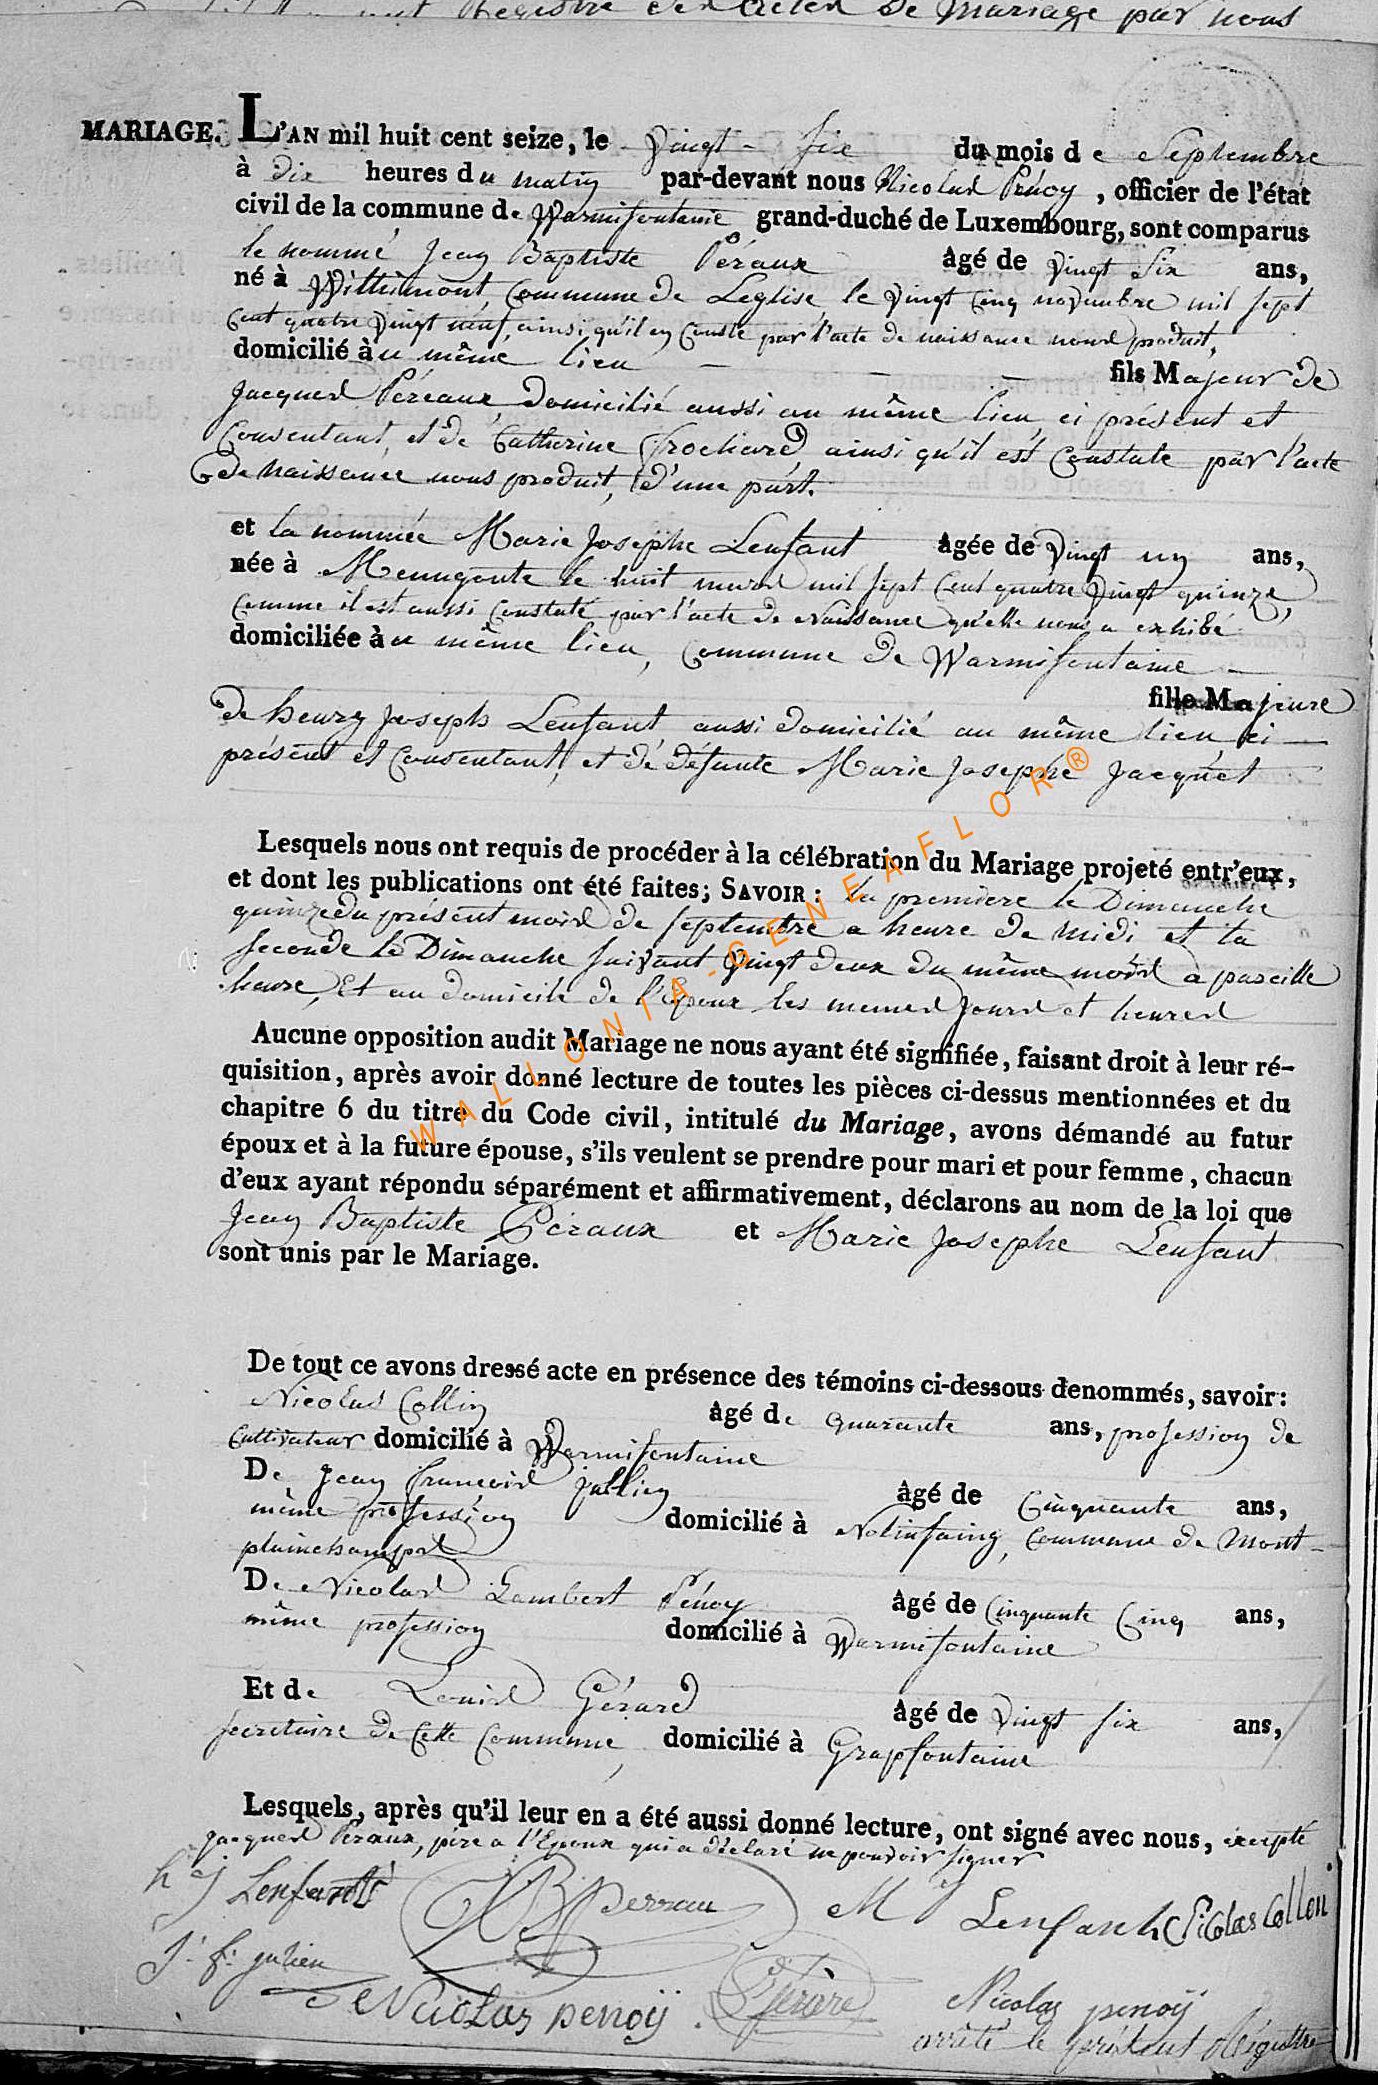 Registre des Actes de Mariage par nous
MARIAGE. L'AN mil huit cent seize, le vingt-six du mois de Septembre
à dix heures du matin par-devant nous Nicolas Pénoy, officier de l'état
civil de la commune de Warmifontaine grand-duché de Luxembourg, sont comparus
le nommé Jean Baptiste Péraux âgé de vingt six ans,
né à Wittimont, Commune de Leglise, le vingt cinq novembre mil sept
cent quatre vingt neuf, ainsi qu'il en conste par l'acte de naissance nous produit,
domicilié au même lieu — — — fils Majeur de
Jacques Péreaux, domicilié aussi au même lieu, ci présent et
consentant, et de Catherine Frochard ainsi qu'il est constaté par l'acte
de naissance nous produit, d'une part.
et la nommée Marie Josephe Lenfant âgée de vingt un ans,
née à Menugoute le huit mars mil sept cent quatre vingt quinze,
comme il est aussi constaté par l'acte de naissance qu'elle nous a exhibé
domiciliée au même lieu, commune de Warmifontaine —
fille Majeure
de henry Joseph Lenfant, aussi domicilié au même lieu, ci —
présent et consentant, et de défunte Marie Josephe Jacquet
Lesquels nous ont requis de procéder à la célébration du Mariage projeté entr'eux,
et dont les publications ont été faites; SAVOIR : la première le Dimanche
quinze du présent mois de septembre a heure de midi et la
seconde le Dimanche suivant vingt deux du même mois à pareille
heure, Et au domicile de l'Epoux les memes jours et heures
Aucune opposition audit Mariage ne nous ayant été signifiée, faisant droit à leur ré-
quisition, après avoir donné lecture de toutes les pièces ci-dessus mentionnées et du
chapitre 6 du titre du Code civil, intitulé du Mariage, avons démandé au futur
époux et à la future épouse, s'ils veulent se prendre pour mari et pour femme, chacun
d'eux ayant répondu séparément et affirmativement, déclarons au nom de la loi que
Jean Baptiste Péraux et Marie Josephe Lenfant
sont unis par le Mariage.
De tout ce avons dressé acte en présence des témoins ci-dessous denommés, savoir:
Nicolas Collin âgé de quarante ans, profession de
Cultivateur domicilié à Warmifontaine
De Jean francois Jullien âgé de Cinquante ans,
même profession domicilié à Nolinfaing, commune de Mont-
plainchamps
De Nicolas Lambert Pénoy âgé de Cinquante Cinq ans,
même profession domicilié à Warmifontaine
Et de Louis Gérard âgé de vingt six ans,
secretaire de Cette Commune, domicilié à Grapfontaine
Lesquels, après qu'il leur en a été aussi donné lecture, ont signé avec nous, excepté
Jacques Péraux, père a l'Epoux qui a déclaré ne pouvoir signer
h j Lenfant JB perrau M j Lenfant Nicolas Collin
J. f. julien
Nicolas penoÿ Gérard Nicolas penoÿ
arrêté le présent Régistre
WALLONIA-GENEAFLOR®